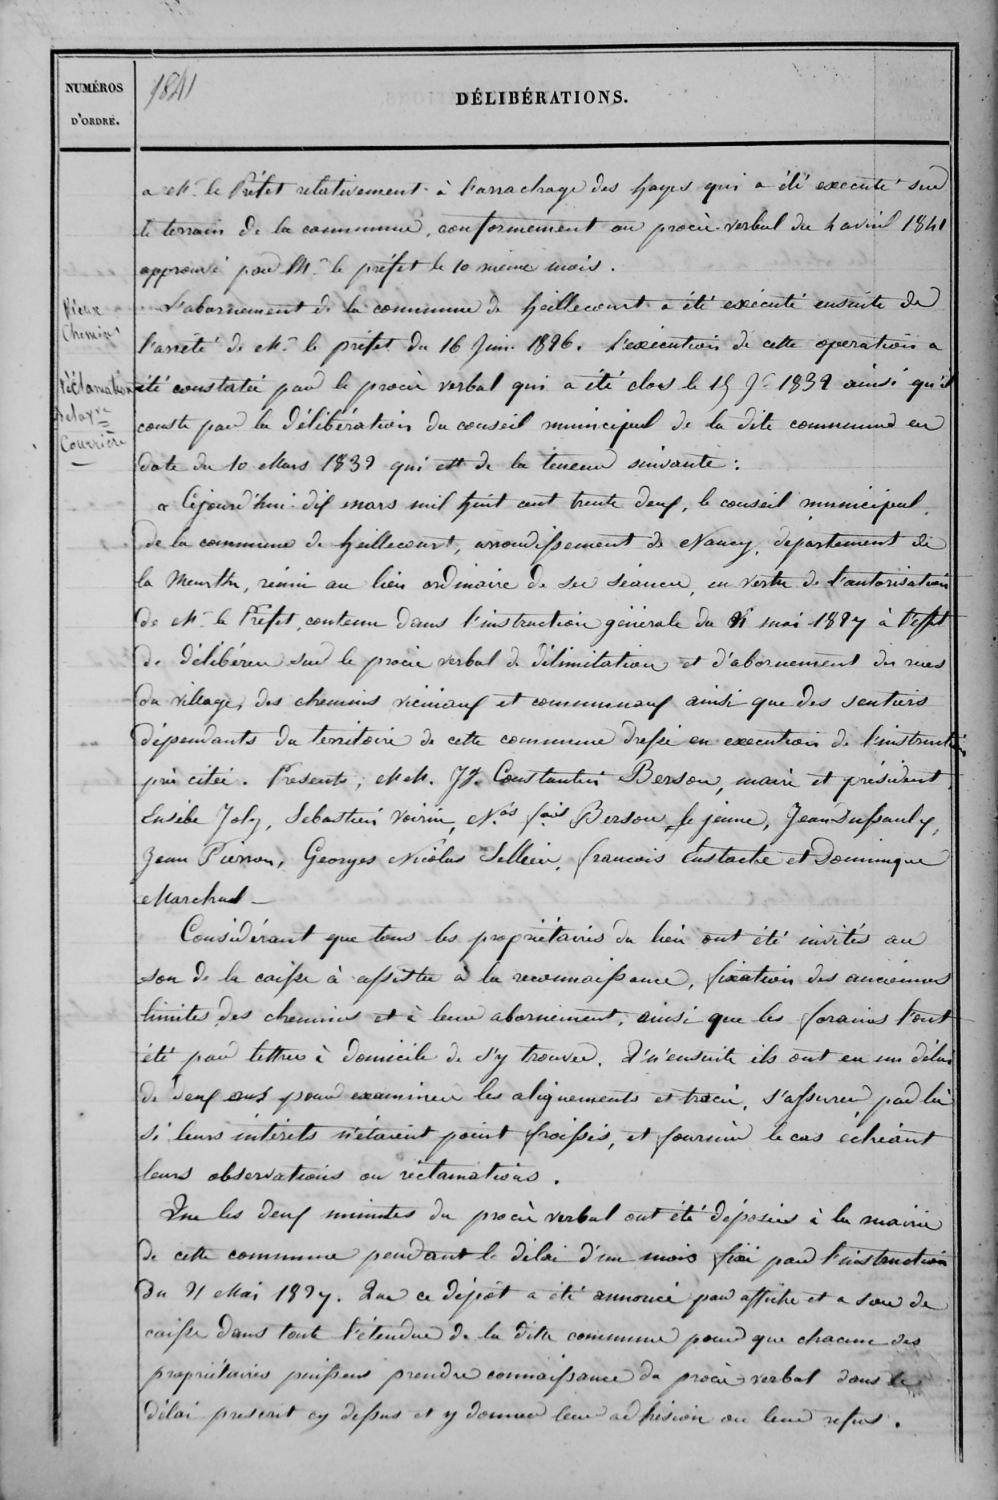 NUMÉROS
D'ORDRE.
1841
DÉLIBÉRATIONS.
a Mr. le Préfet relativement à l'arrachage des hayes qui a été executé sur
le terrain de la commune, conformement au procès-verbal du 4 avril 1841
approuvé par Mr. le préfet le 10 meme mois.
Vieux
Chemins
L'abornement de la commune de heillecourt a été exécuté ensuite de
l'arrêté de Mr. le préfet du 16 Juin 1826. L'exécution de cette operation a
Réclamation
Delaxre
Courrière
été constatée par le procès verbal qui a été clos le 15 Jr. 1832 ainsi qu'il
conste par la délibération du conseil municipal de la dite commune en
date du 10 Mars 1832 qui est de la teneur suivante :
« Cejourd'hui dix mars mil huit cent trente deux, le conseil municipal
de la commune de heillecourt, arrondissement de Nancy, département de
la Meurthe, réuni au lieu ordinaire de ses séances, en vertu de l'autorisation
de Mr. le Préfet, contenue dans l'instruction générale du 21 mai 1827 à l'effet
de délibérer sur le procès verbal de délimitation et d'abornement des rues
du village, des chemins vicinaux et communaux ainsi que des sentiers
dépendants du territoire de cette commune dressé en execution de l'instruction
pré citée. Présents, MM. Jh. Constantin Berson, maire et président,
Eusèbe Joly, Sebastien Voirin, Nas. fois Berson le jeune, Jean Dussaulx,
Jean Pierron, Georges Nicolas Sellier, francois Eustache et Dominique
Marchal —
Considérant que tous les propriétaires du lieu ont été invités au
son de la caisse à assister à la reconnaissance, fixation des anciennes
limites des chemins et à leur abornement, ainsi que les forains l'ont
été par lettres à domicile de s'y trouver. Qu'ensuite ils ont eu un délai
de deux ans pour examiner les alignements et tracés, s'assurer par là
si leurs intérêts n'étaient point froissés, et fournir le cas échéant
leurs observations ou réclamations.
Que les deux minutes du procès verbal ont été déposées à la mairie
de cette commune pendant le délai d'un mois fixé par l'instruction
du 21 Mai 1827. Que ce dépôt a été annoncé par affiche et a son de
caisse dans toute l'étendue de la dite commune pour que chacun des
propriétaires puissent prendre connaissance du procès-verbal dans le
délai prescrit cy dessus et y donner leur adhésion ou leur refus.